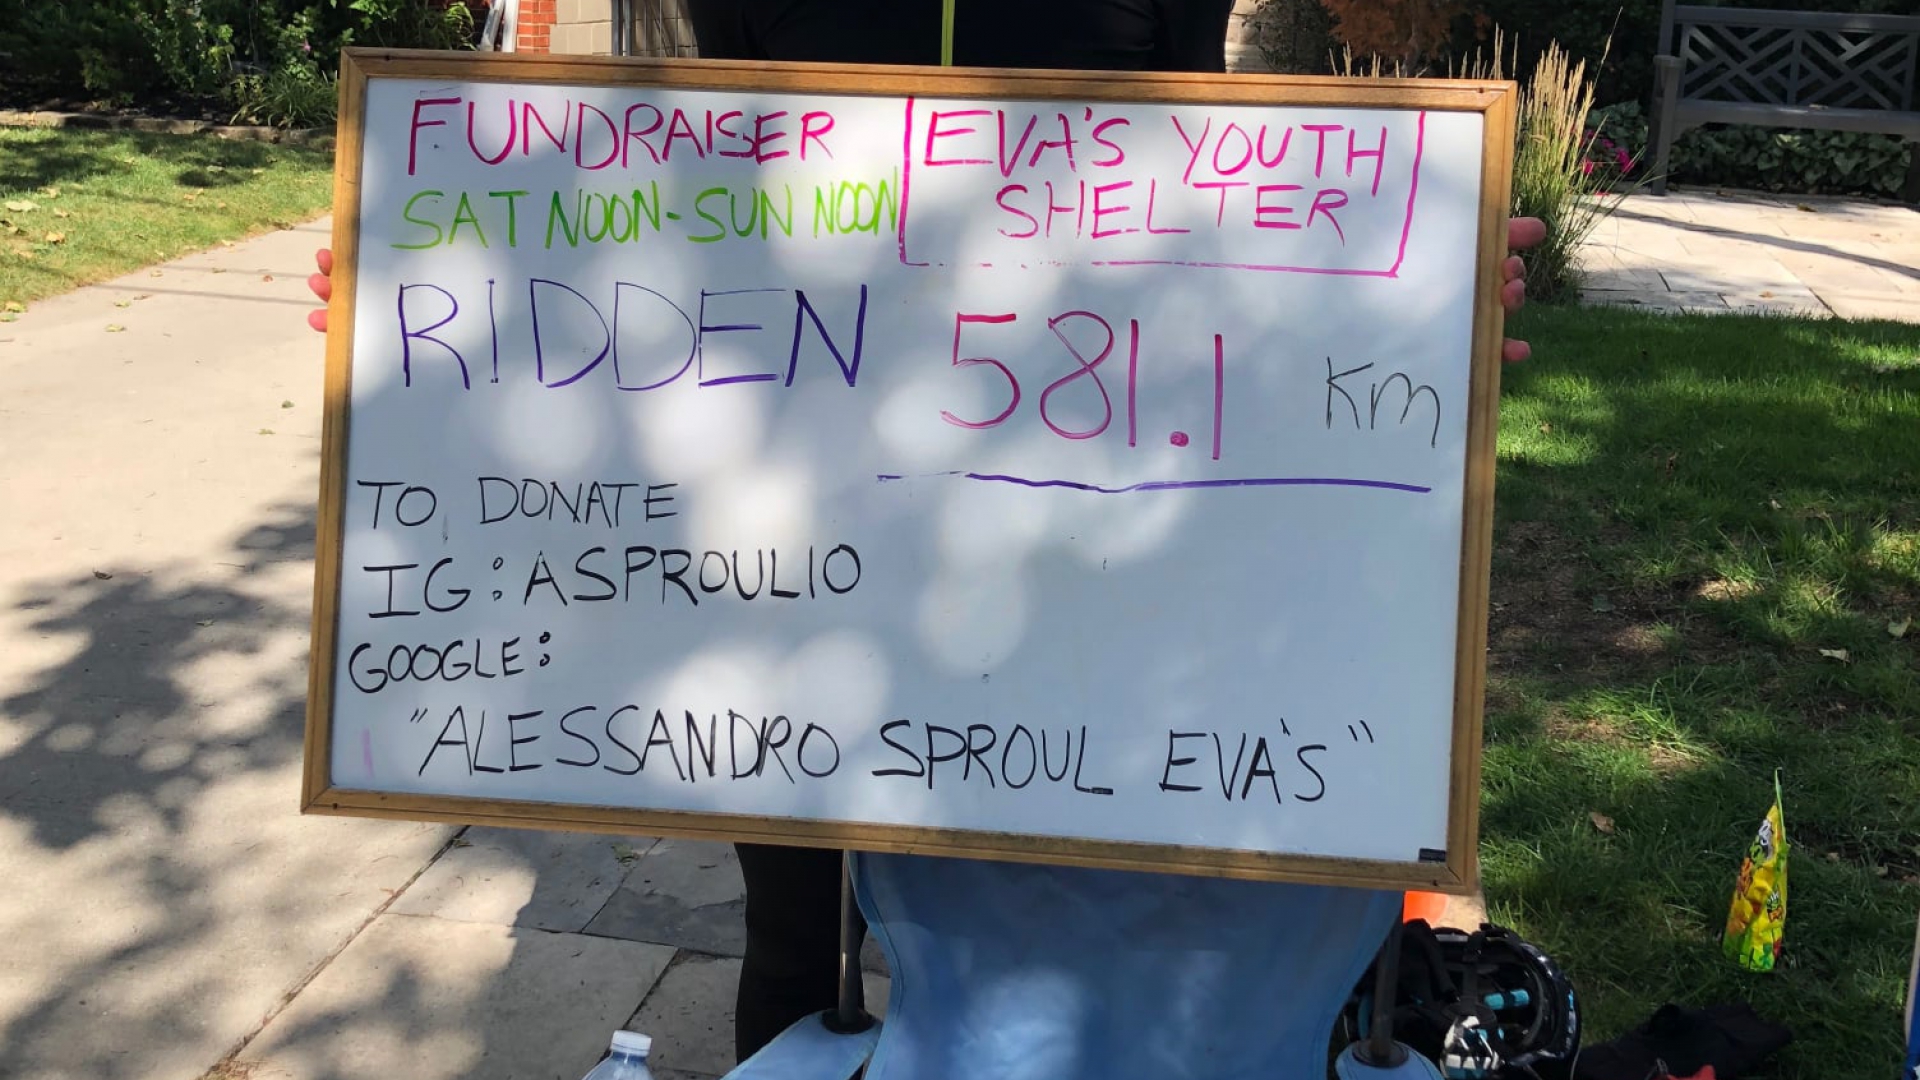 FUNDRAISER
SAT NOON-SUN NOON
EVA'S YOUTH
SHELTER
RIDDEN 581.1 Km
TO DONATE
IG: ASPROUL10
GOOGLE:
"ALESSANDRO SPROUL EVA'S"